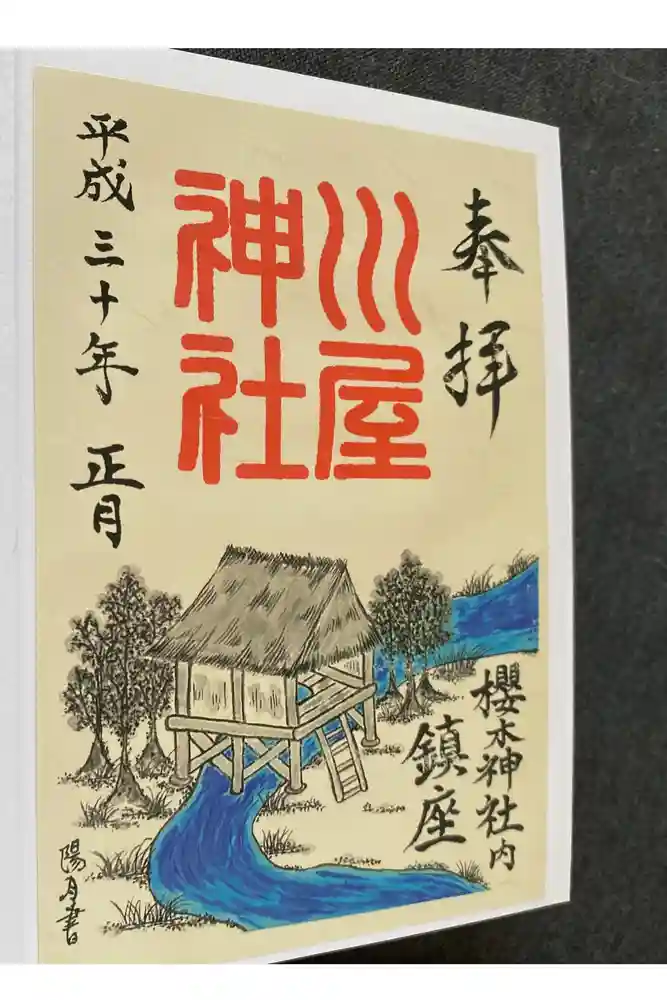 奉拝
川屋
神社
平成三十年 正月
櫻木神社内
鎮座
陽月書